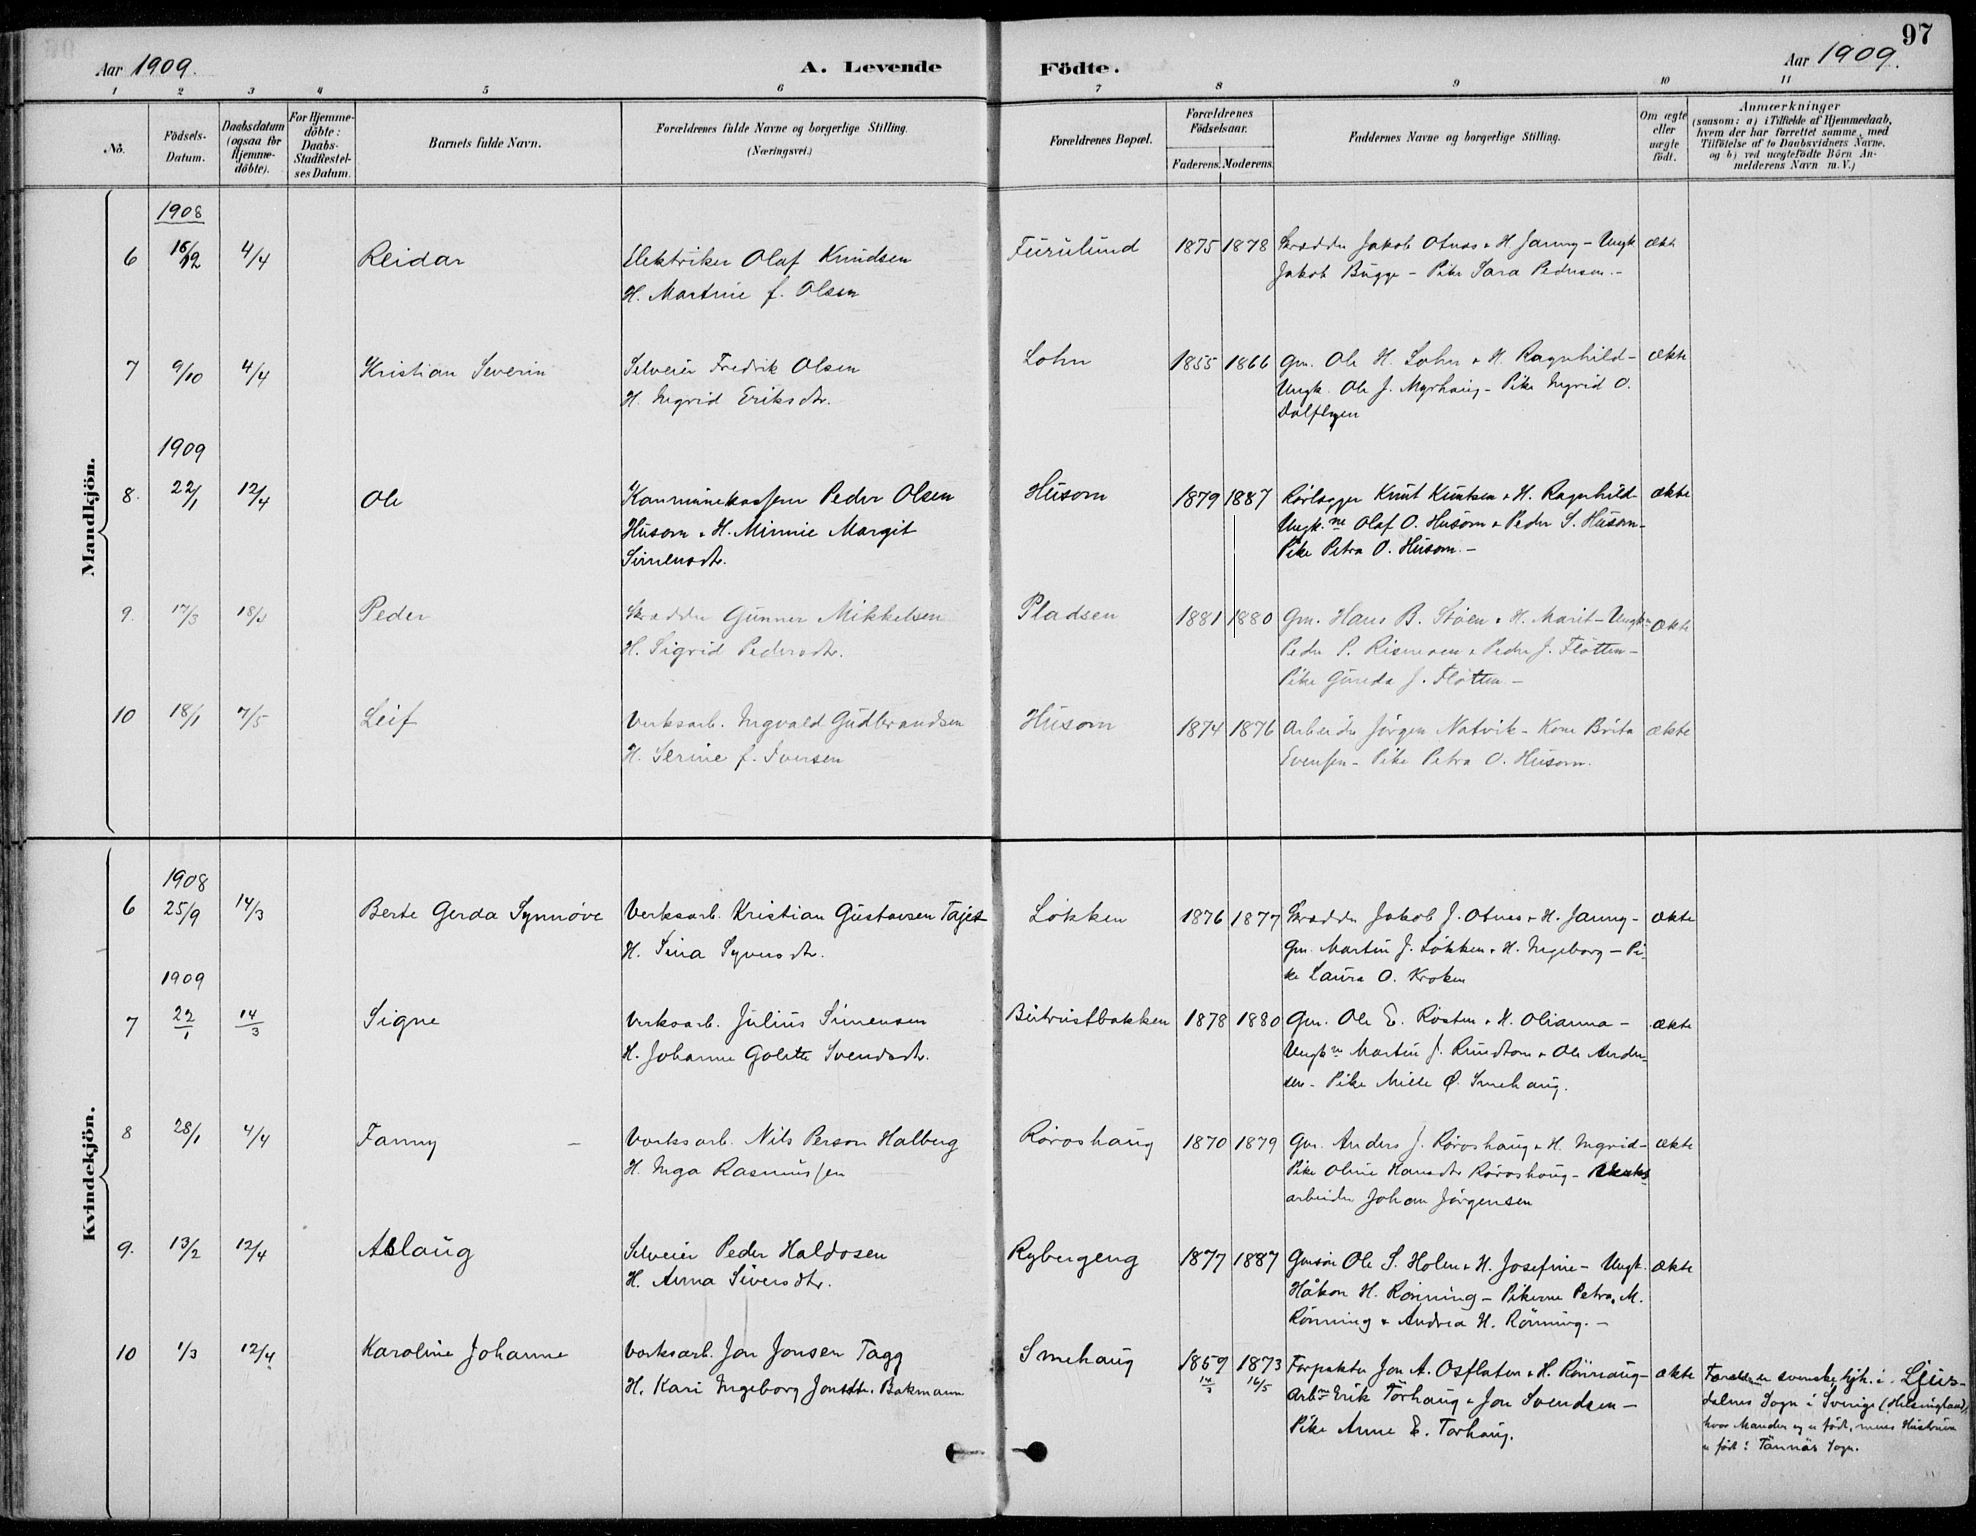 97
Aar 1909.
A. Levende
Födte.
Aar 1909.
1 2 3 4 5 6 7 8 9 10 11
No.
Födsels-Datum.
Daabsdatum (ogsaa for Hjemmedöbte).
For Hjemmedöbte: Daabs-Stadfæstelses Datum.
Barnets fulde Navn.
Forældrenes fulde Navne og borgerlige Stilling. (Næringsvei.)
Forældrenes Bopæl.
Forældrenes Födselsaar.
Faderens. Moderens.
Faddernes Navne og borgerlige Stilling.
Om ægte eller uægte födt.
Anmærkninger
(saasom: a) i Tilfælde af Hjemmedaab,
hvem der har forrettet samme, med
Tilföielse af to Daabsvidners Navne,
og b) ved uægtefödte Börn An-
melderens Navn m. V.)
Mandkjön.
1908
6 16/12 4/4 Reidar Elektriker Olaf Knudsen Furulund 1875 1878 Skrædder Jakob Otnes & H. Janny - Ungk. ækte
H. Martine f. Olsen Jakob Bugge - Pike Sara Pedersen. -
7 9/10 4/4 Kristian Severin Selveier Fredrik Olsen Lohn 1855 1866 Gm. Ole H. Lohn & H. Ragnhild - ækte
H. Ingrid Eriksdtr. Ungk. Ole J. Myrhaug - Pike Ingrid O.
Dalflyen
1909
8. 22/1 12/4 Ole Kommunekasserer Peder Olsen Husom 1879 1887 Rörlægger Knut Knutsen & H. Ragnhild - ækte
Husom & H. Minnie Margit Ungk.ne Olaf O. Husom & Peder S. Husom -
Simensdtr. Pike Petra O. Husom. -
9. 17/3 18/4 Peder Skrædder Gunner Mikkelsen Pladsen 1881 1880 Gm. Hans B. Stöen & H. Marit - Ungkne ækte
H. Sigrid Pedersdtr. Peder P. Rismoen & Peder J. Flötten -
Pike Guneda J. Flötten -
10 18/1 7/5 Leif Verksarb. Ingvald Gudbrandsen Husom 1874 1876 Arbeider Jörgen Natvik - Kone Brita ækte
H. Serine f. Iversen Evensen - Pike Petra O. Husom.
Kvindekjön.
1908
6 25/9 14/3 Berte Gerda Synnöve Verksarb. Kristian Gustavsen Tajet Lökken 1876 1877 Skrædder Jakob J. Otnes & H. Janny - ækte
H. Sina Syversdtr. Gm. Martin J. Lökken & H. Ingeborg - Pi-
ke Laura O. Kroken
1909
7 22/1 14/3 Signe Verksarb. Julius Simensen Butrustbakken 1878 1880 Gm. Ole E. Rösten & H. Olianna - ækte
H. Johanne Golette Svendsdtr. Ungkne Martin J. Rundtom & Ole Ander-
sen - Pike Mille Ø. Smehaug.
8 28/1 4/4 Fanny - Verksarb. Nils Person Halberg Röroshaug 1870 1879 Gm. Anders J. Röroshaug & H. Ingrid - ækte
H. Inga Rasmussen Pike Oline Hansdtr Röroshaug - Verks
arbeider Johan Jörgensen
9. 13/2 12/4 Aslaug Selveier Peder Haldosen Rybergeng 1877 1887 Gmsön Ole S. Holen & H. Josefine - Ungk. ækte
H. Anna Siversdtr. Håkon H. Rönning - Pikerne Petra M.
Rönning & Andrea H. Rönning. -
10 1/3 12/4 Karoline Johanne Verksarb. Jon Jonsen Tagg Smehaug 1869 1873 Forpakter Jon A. Osflaten & H. Rönnaug - ækte
14/3 16/5
H. Kari Ingeborg Jonsdtr. Bakmann Arbne Erik Torhaug & Jon Svendsen -
Pike Anne E. Torhaug.
Forældre er svenske hjh. i Ljus-
dalnes Sogn i Sverige (Helsingland)
hvor Manden og er födt, mens Hustruen
er födt i Tännäs Sogn.